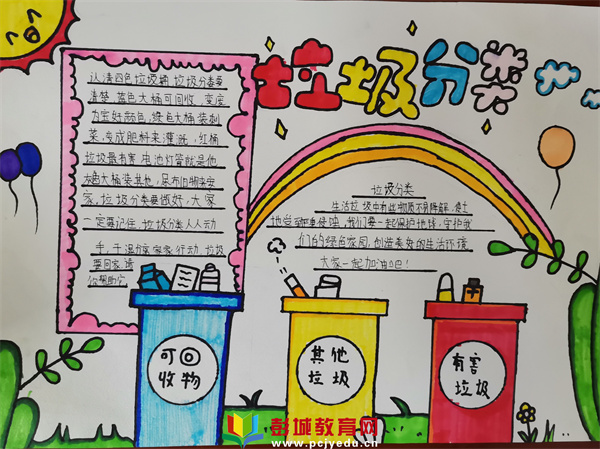 垃圾分类
认清四色垃圾桶 垃圾分类要
清楚 蓝色大桶可回收 变废
为宝好颜色，绿色大桶装剩
菜，变成肥料来灌溉，红桶
垃圾最有害 电池灯管就是他
色大桶装其他，尿布旧物来安
家，垃圾分类要做好，大家
一定要记住，垃圾分类人人动
手，干湿分家 行动，垃圾
要回家，请
你帮助它
垃圾分类
生活垃圾中有些物质不易降解，使土
地受到严重侵蚀，我们要一起保护地球，守护我
们的绿色家园，创造美好的生活环境
大家一起加油吧！
可回
收物
其他
垃圾
有害
垃圾
彭城教育网
www.pcjyedu.cn